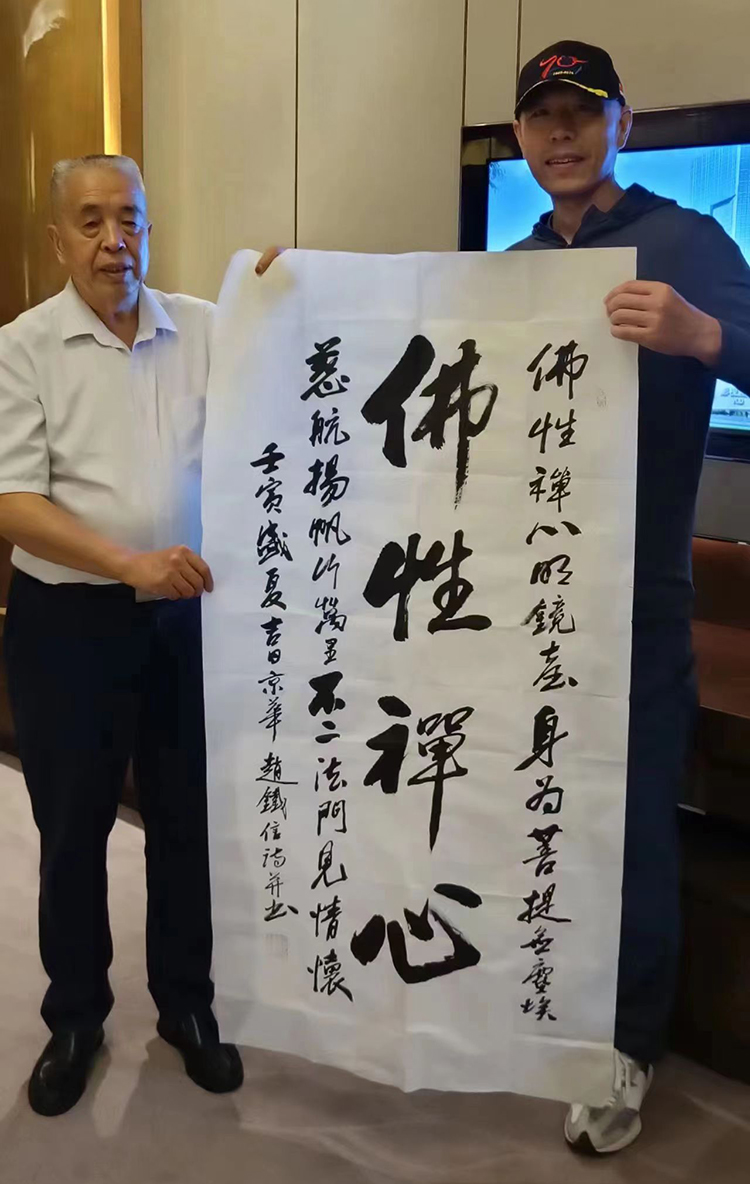 佛性禪心明鏡臺身为菩提無塵埃
佛性禪心
慈航揚帆行萬里不二法門見情懷
壬寅盛夏吉日京華趙鐵信詩并书
70